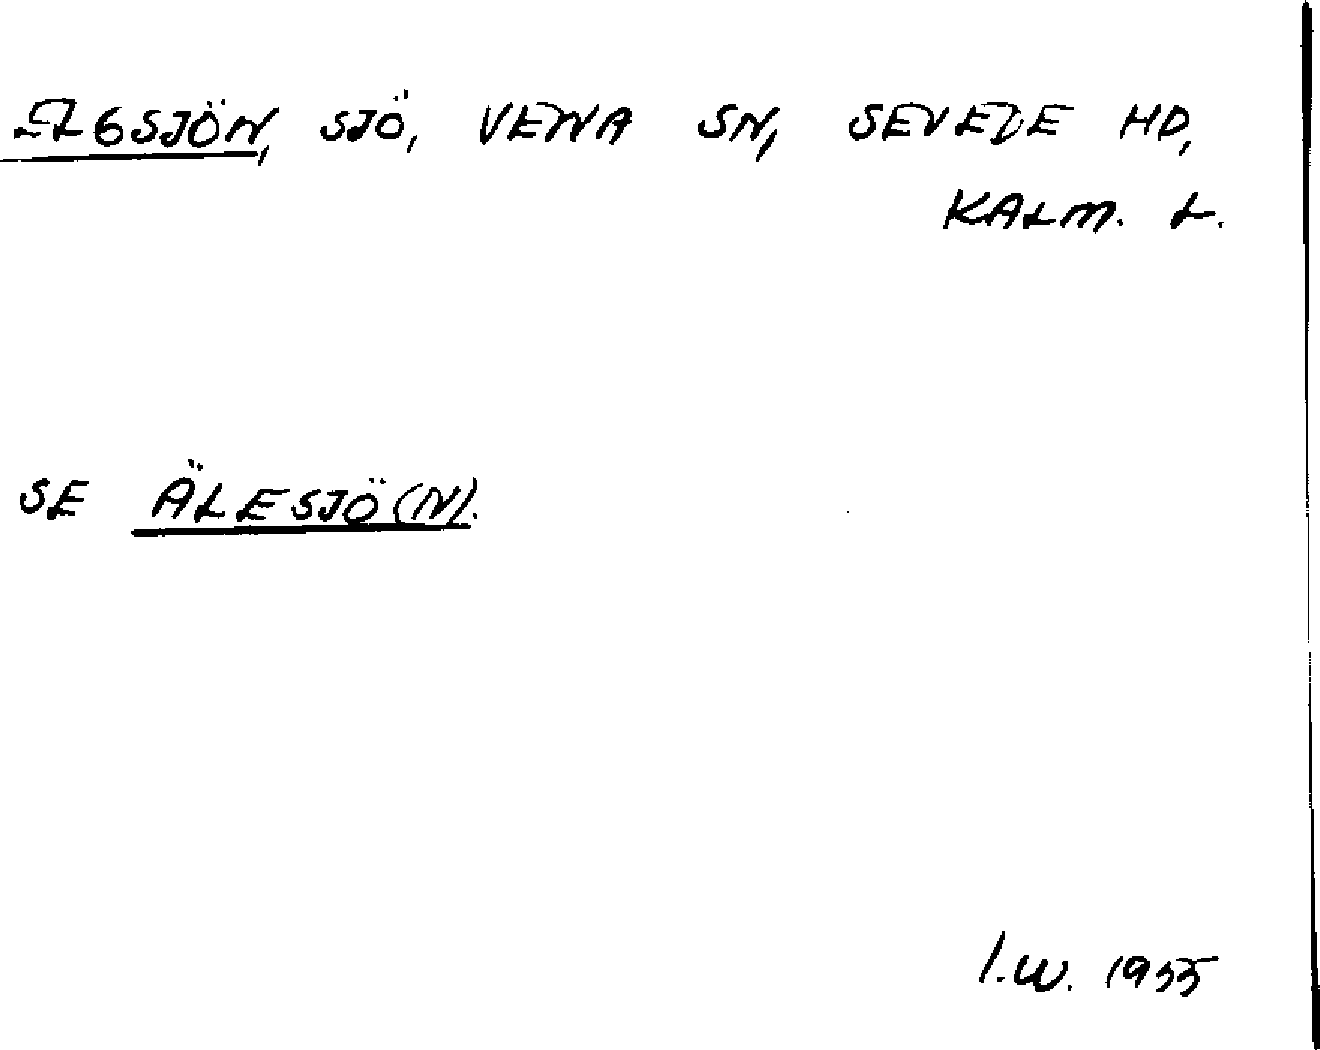 ELGSJÖN, SJÖ, VENA SN, SEVEDE HD,
KALM. L.
SE ÄLESJÖ(N).
I.W. 1955